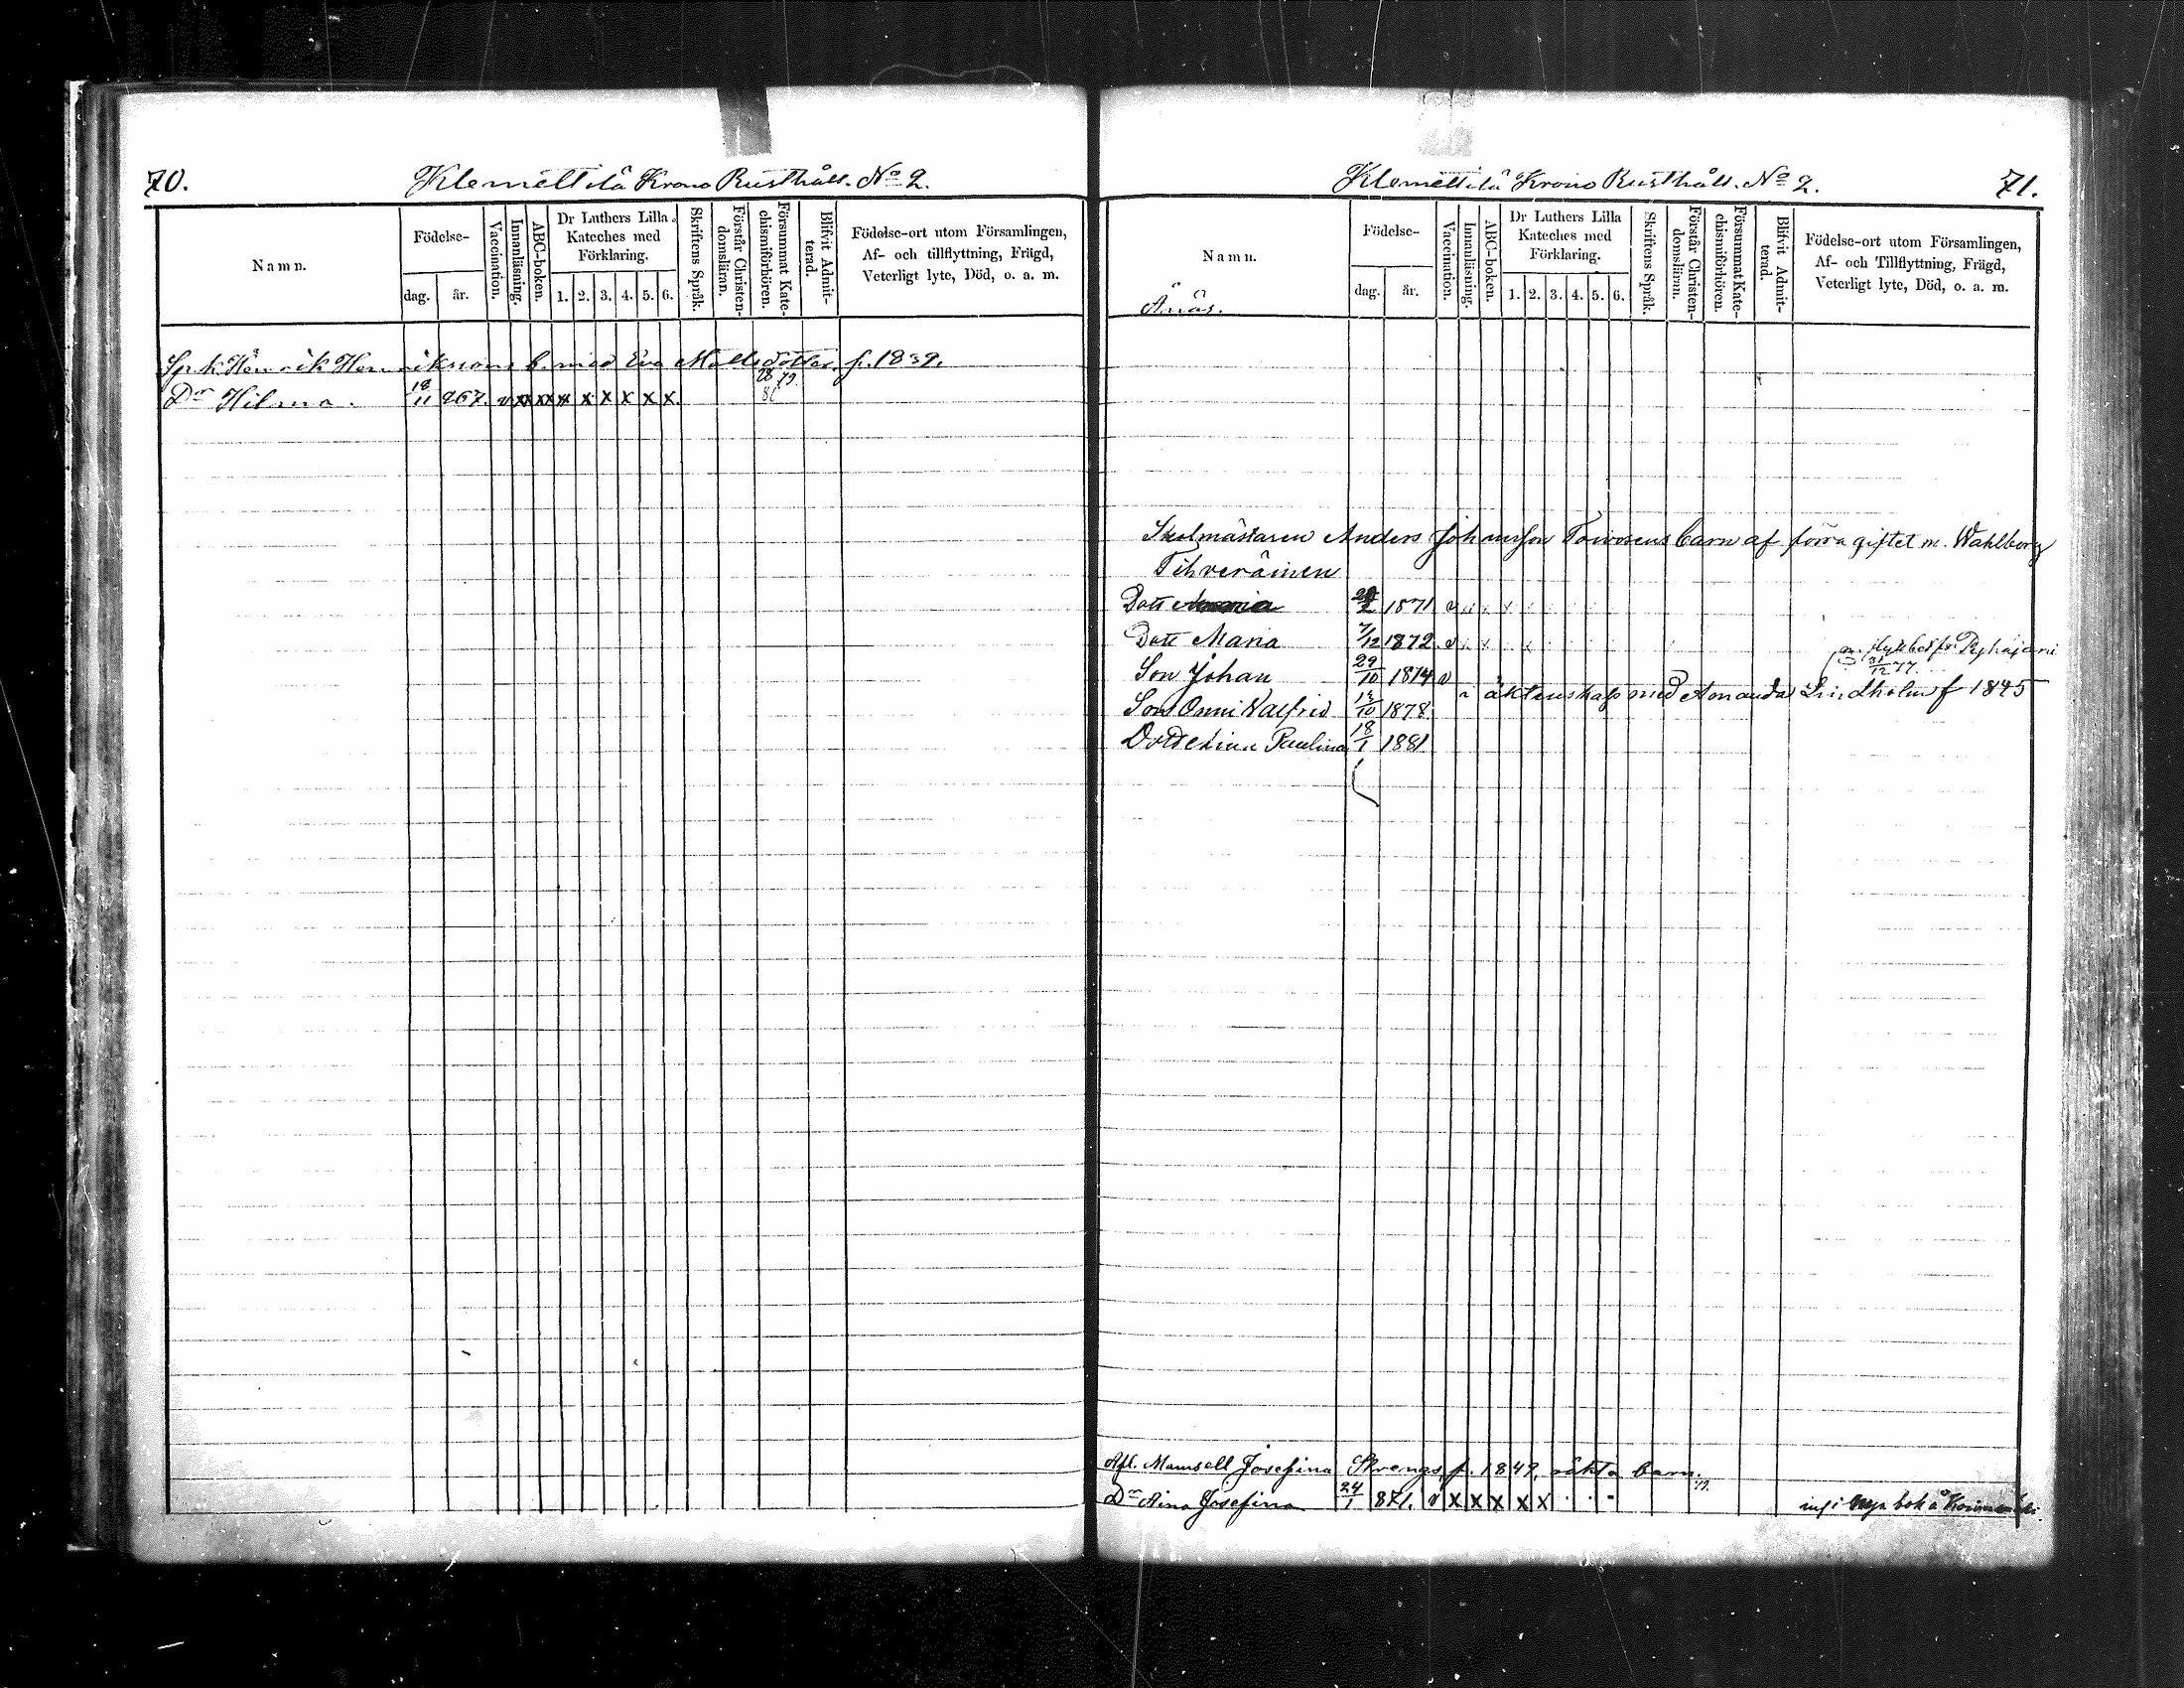 70.
Klemettilä Krono Rusthåll. No 2.
Namn.
Födelse-
dag.
år.
Vaccination.
Innanläsning.
ABC-boken.
Dr Luthers Lilla
Kateches med
Förklaring.
1. 2. 3. 4. 5. 6.
Skriftens Språk.
Förstår Christen-
domsläran.
Försummat Kate-
chismiförhören.
Blifvit Admit-
terad.
Födelse-ort utom Församlingen,
Af- och tillflyttning, Frägd,
Veterligt lyte, Död, o. a. m.
Henrik Henrikssons b. med Eva Matts dotter. f. 1839.
Dr Hilma. 18/11 867. v xx xx x x x x x x.
Klemettilä Krono Rusthåll. No 2.
71.
Namn.
Änäs.
Födelse-
dag.
år.
Vaccination.
Innanläsning.
ABC-boken.
Dr Luthers Lilla
Kateches med
Förklaring.
1. 2. 3. 4. 5. 6.
Skriftens Språk.
Förstår Christen-
domslärnn.
Försummat Kate-
chismiförhören.
Blifvit Admit-
terad.
Födelse-ort utom Församlingen,
Af- och Tillflyttning, Frägd,
Veterligt lyte, Död, o. a. m.
Skolmästaren Anders Johansson Toivosens barn af förra giftet m. Wahlborg
Tihveräinen
Dott 1871 v
Dott Maria 7/12 1872. v
Son Johan 29/10 1874 v
i äktenskap med Amanda Lindholm f 1845
Son Onni Valfrid 10 1878.
Dott Paulina 18/1 1881
Mamsell Josefina f. 1849, oäkta barn.
Dr Aina Josefina 24/1 871. v x x x x x